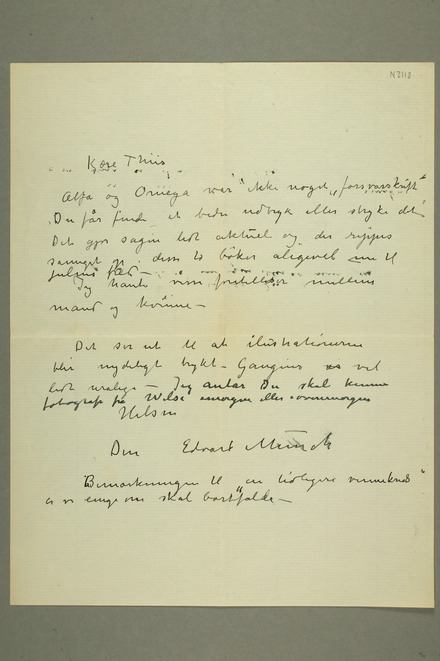 N 2118
Kære Thiis
Alfa og Omega var ikke noget „forsvarsskrift"
Du får finde et bedre udtryk eller stryke det
Det gjør sagen lidt aktuel og der rippes
op i disse to bøker aligevel
Jeg mellem
mand og kvinne –
Det ser ut til at ilustrationerne
blir nydeligt trykt – Gauguins vel
lidt uralige – Jeg antar Du skal kunne
fotografi fra Wilse imorgen eller overimorgen
Hilsen
Din Edvard Munch
Bemærkningen til „en tidligere
er vi enige om skal bortfalde –